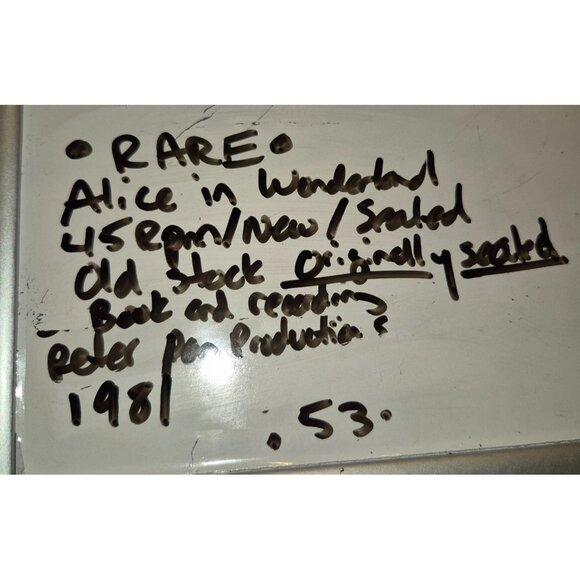 • RARE •
Alice in Wonderland
45 Rpm/New/Sealed
Old Stock Originally sealed
- Book and recording
Peter Pan Productions
1981
.53.